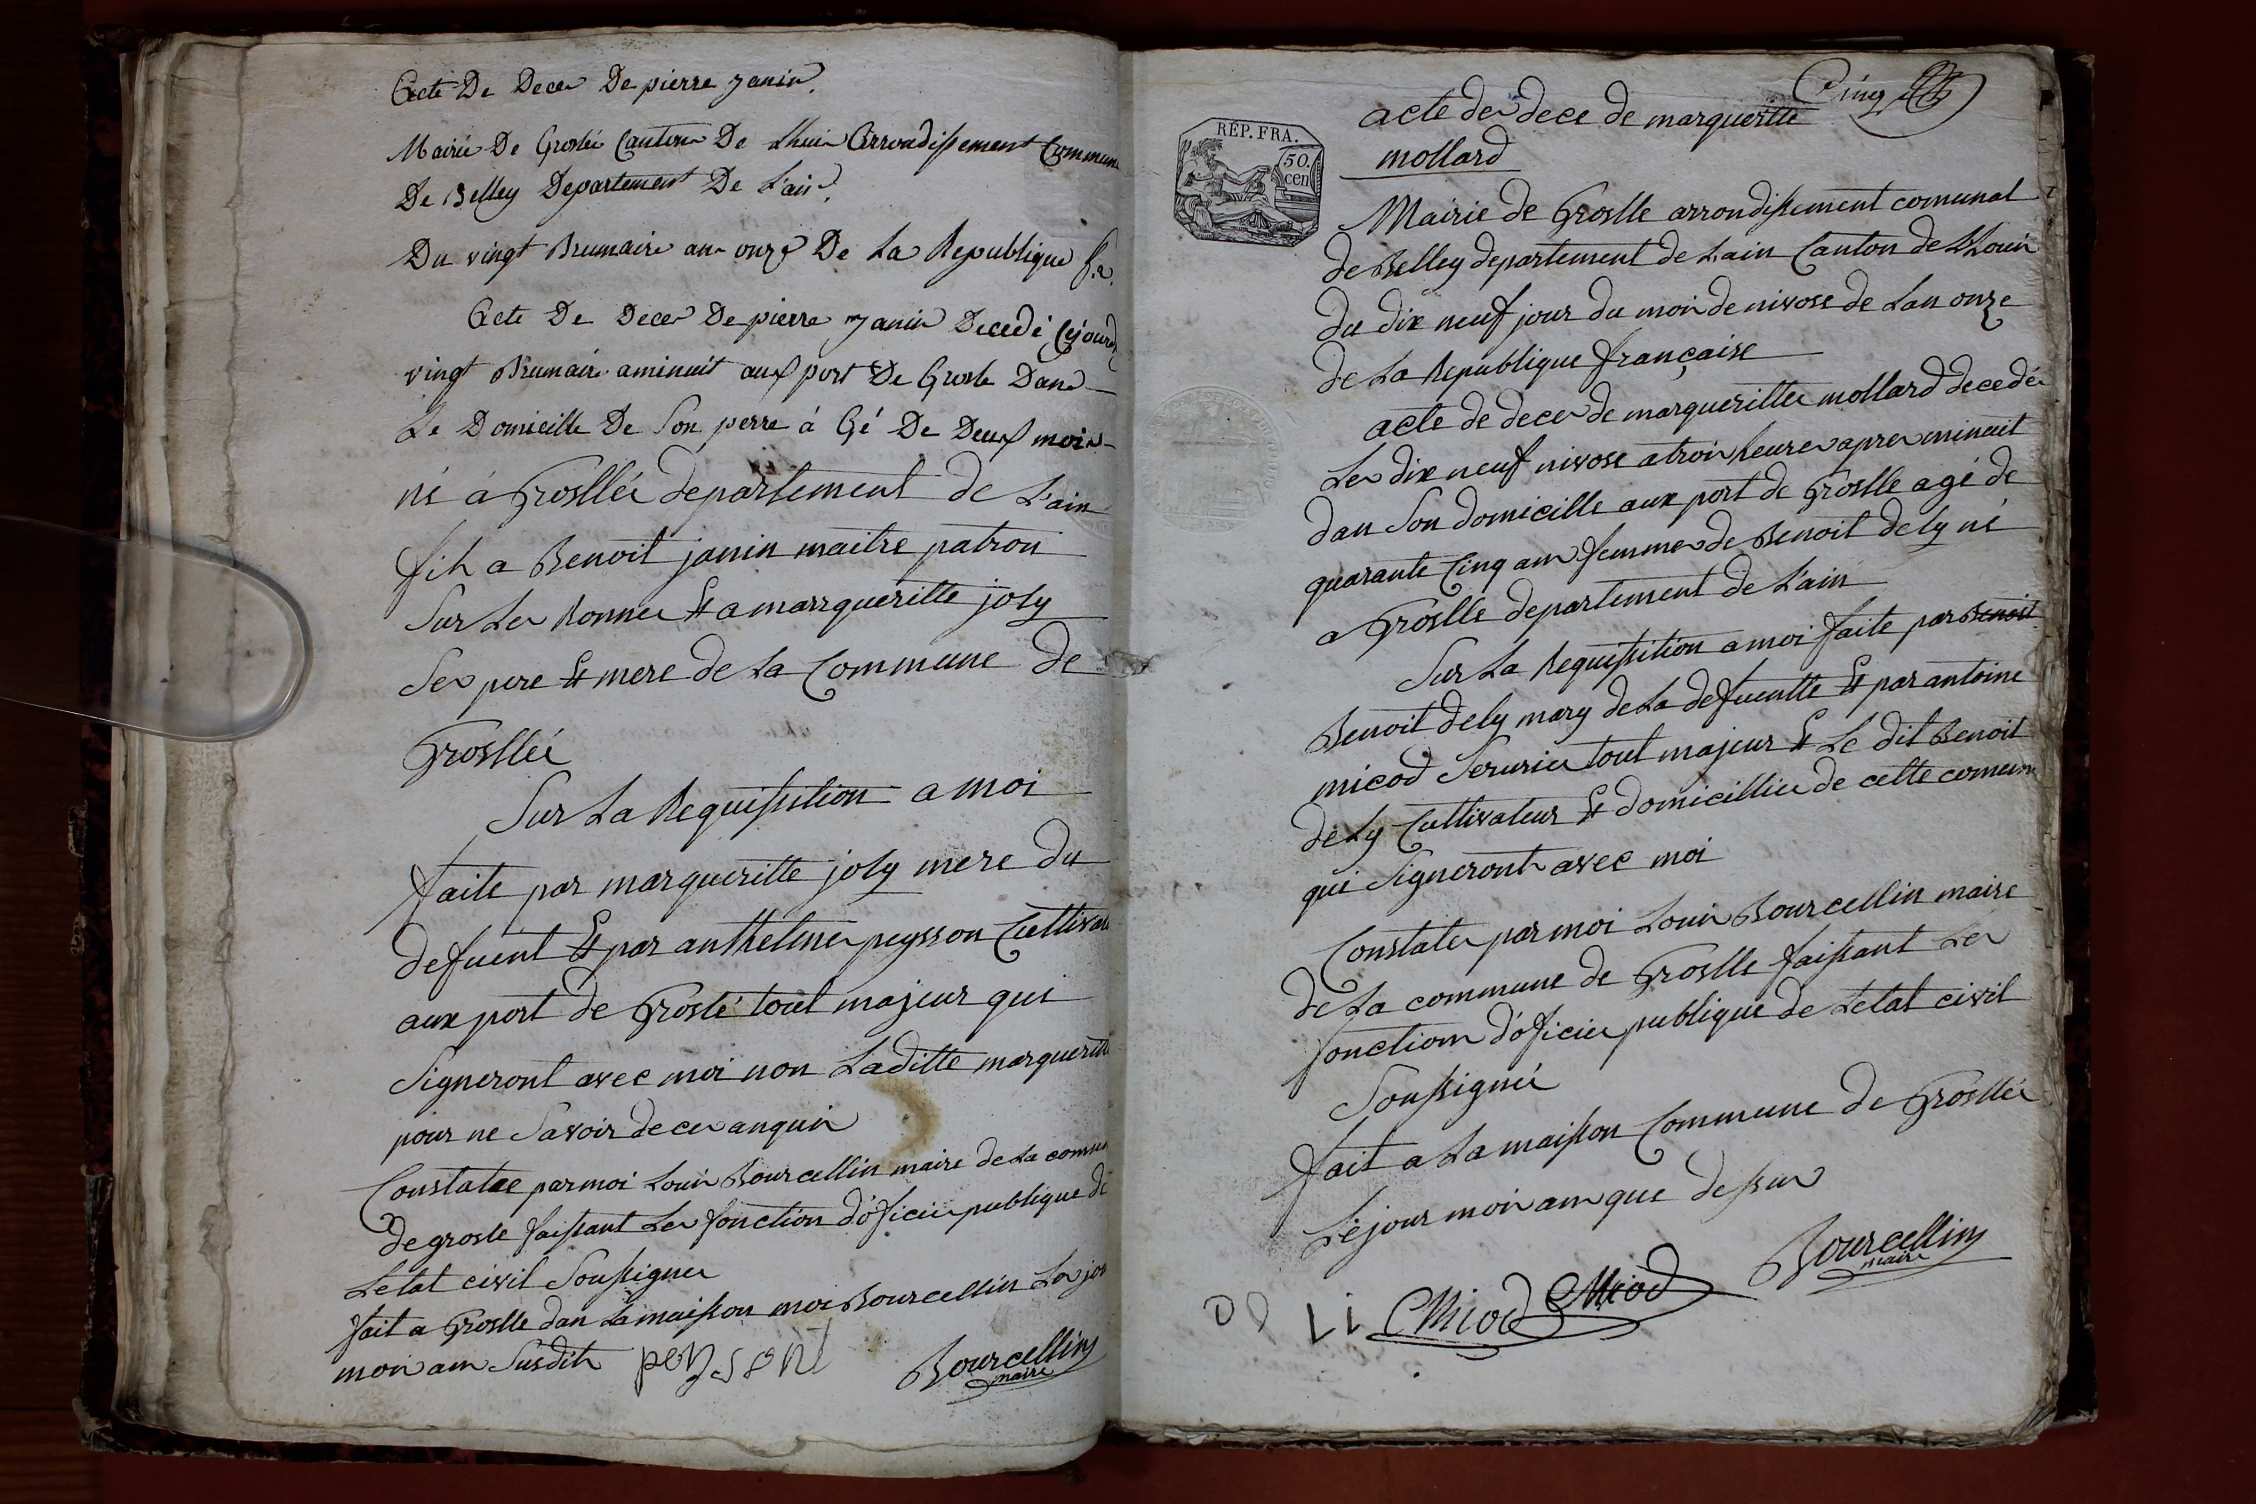 Acte De Deces De pierre janin
Mairie De Groslée Canton De Lhuis Arrondissement Commun
De Belley Departement De L'ain
Du vingt Brumaire an onze De La Republique f.se
Acte De Deces De pierre janin Decedé Cejourd
vingt Brumaire aminuit aux port De Grosle Dans
Le Domicille De Son perre á Gé De Deux mois
né á Grosllée departement de L'ain
fils a Benoit janin maitre patron
Sur Le Ronne Et a marrgueritte joly
Ses pere Et mere de La Commune de
Grosllée
Sur La Requissition a moi
faite par margueritte joly mere du
defuent Et par anthelme peysson Cultivat
aux port de Groslé tout majeur qui
Signeront avec moi non Laditte margueritte
pour ne Savoir de ce anquis
Constatee par moi Louis Bourcellin maire de La comun
de grosle faissant Les fonction d'óficier publique de
Letat civil Soussigner
fait a Groslle dan La maisson moi Bourcellin Le jou
mois an Susdit peysont
Bourcellin
maire
Cinq
acte de dece de margueritte
mollard
REP. FRA.
50.
cen
Mairie de Groslle arrondissement comunal
de Belley departement de L'ain Canton de Lhouis
du dix neuf jour du mois de nivose de Lan onze
de La Republique française
acte de deces de margueritte mollard decedée
Le dix neuf nivose a trois heures apres minuit
dan Son domicille aux port de Groslle agé de
quarante Cinq ans femme de Benoit dely né
a Groslle departement de L'ain
Sur La Requissition a moi faite par Benoit
Benoit dely mary de La defuentte Et par antoine
micod Serurier tout majeur Et Le dit Benoit
deLy Cultivateur Et domicillier de cette comeune
qui Signeront avec moi
Constater par moi Louis Bourcellin maire
de La commune de Groslle faissant Les
fonctions d'óficier publique de Letat civil
Soussigneé
fait a La maisson Commune de Grosllée
Le jour mois an que dessus
Bourcellin
maire
Micod Micod